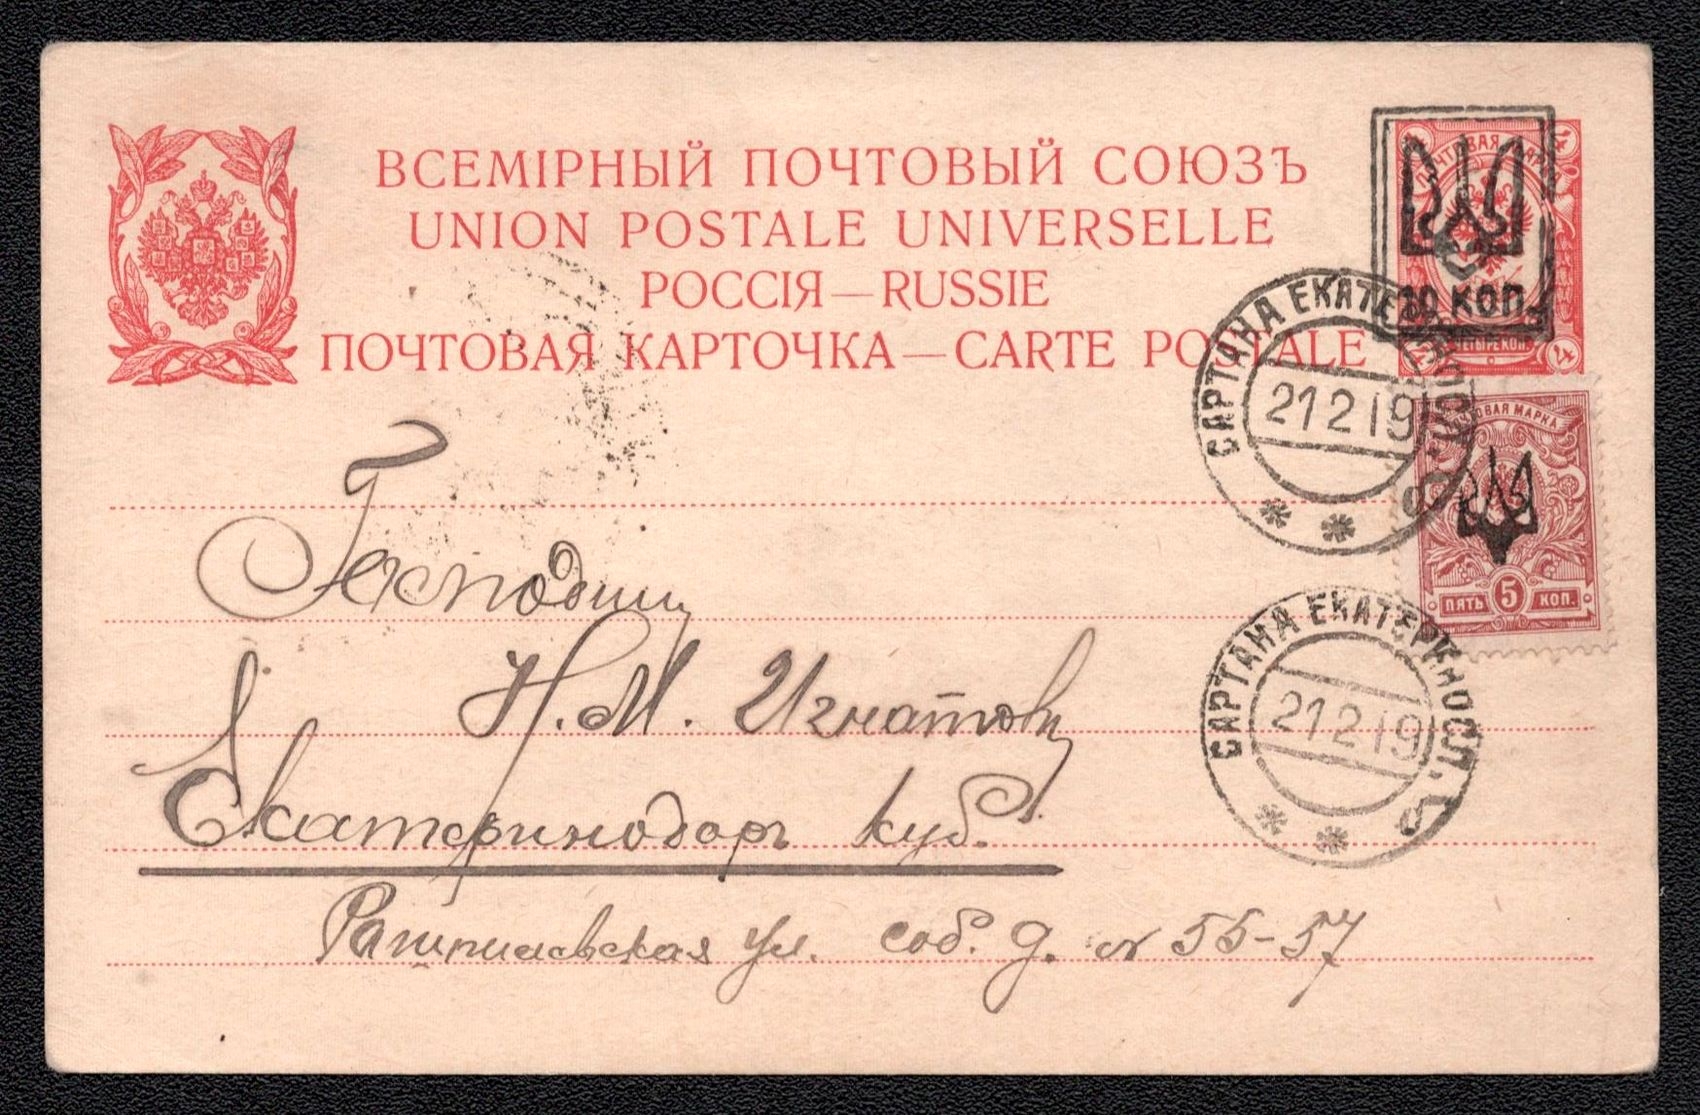 ВСЕМІРНЫЙ ПОЧТОВЫЙ СОЮЗЪ
UNION POSTALE UNIVERSELLE
РОССІЯ — RUSSIE
ПОЧТОВАЯ КАРТОЧКА — CARTE POSTALE
ПОЧТОВАЯ МАРКА
КОП.
ЧЕТЫРЕ КОП.
4
САРТАНА ЕКАТЕРИНОСЛ.
21 2 19
ПОЧТОВАЯ МАРКА
ПЯТЬ 5 КОП.
САРТАНА ЕКАТЕРИНОСЛ. б
21 2 19
Господину
Н. М. Игнатову
Екатеринодаръ Куб.
Рашпилевская ул. соб. д. № 55-57